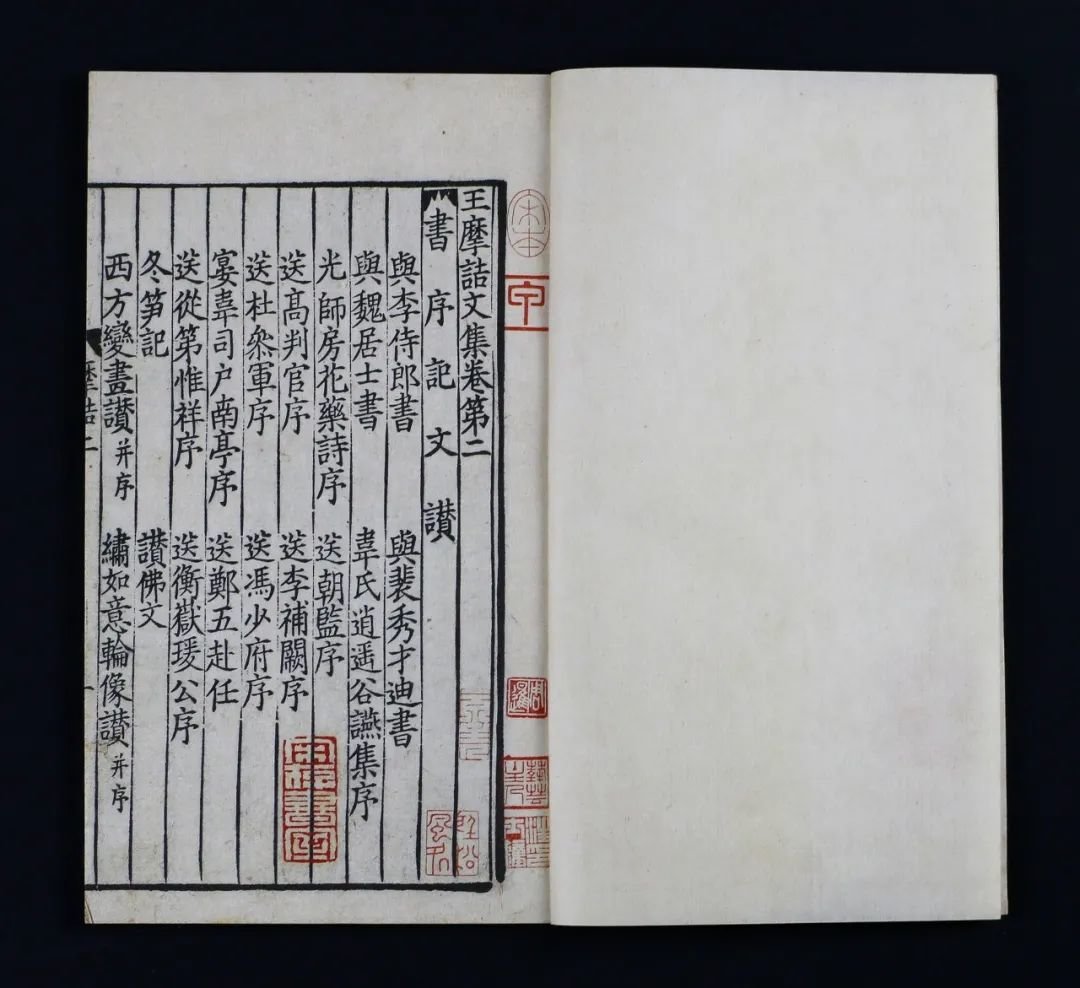 王摩詰文集卷第二
書 序 記 文 讚
與李侍郎書 與裴秀才迪書
與魏居士書 韋氏逍遥谷讌集序
光師房花藥詩序 送朝監序
送髙判官序 送李補闕序
送杜叅軍序 送馮少府序
宴韋司户南亭序 送鄭五赴任
送從第惟祥序 送衡嶽瑗公序
冬笋記 讚佛文
西方變畫讚并序 繡如意輪像讚并序
摩詰二
一
宋本